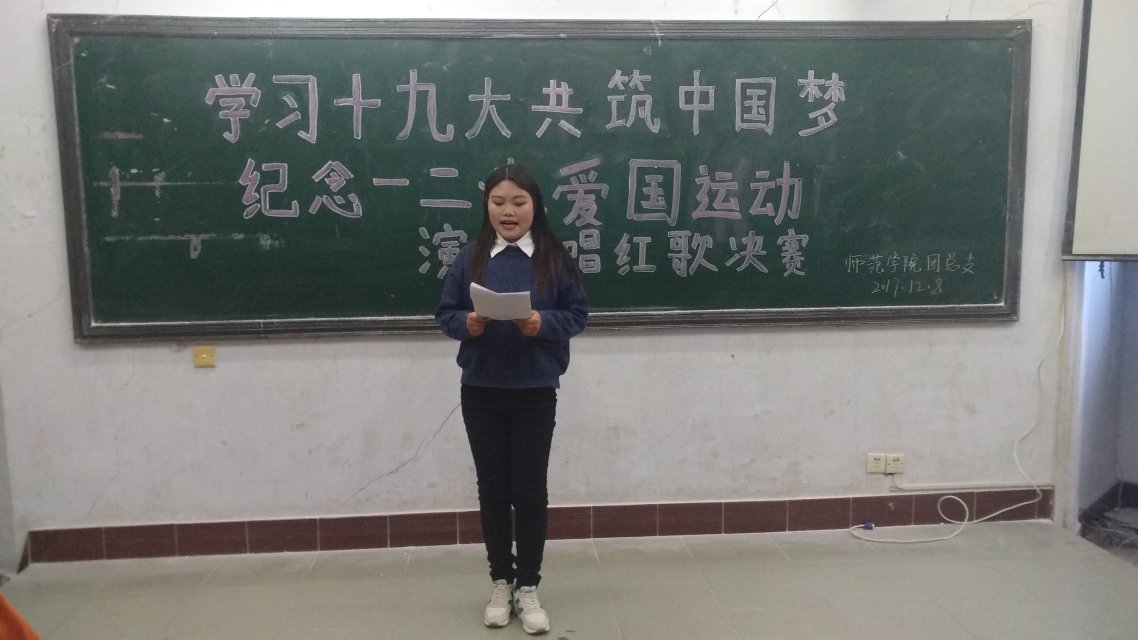 学习十九大共筑中国梦
纪念一二 爱国运动
演 唱红歌决赛
师范学院团总支
2017.12.8